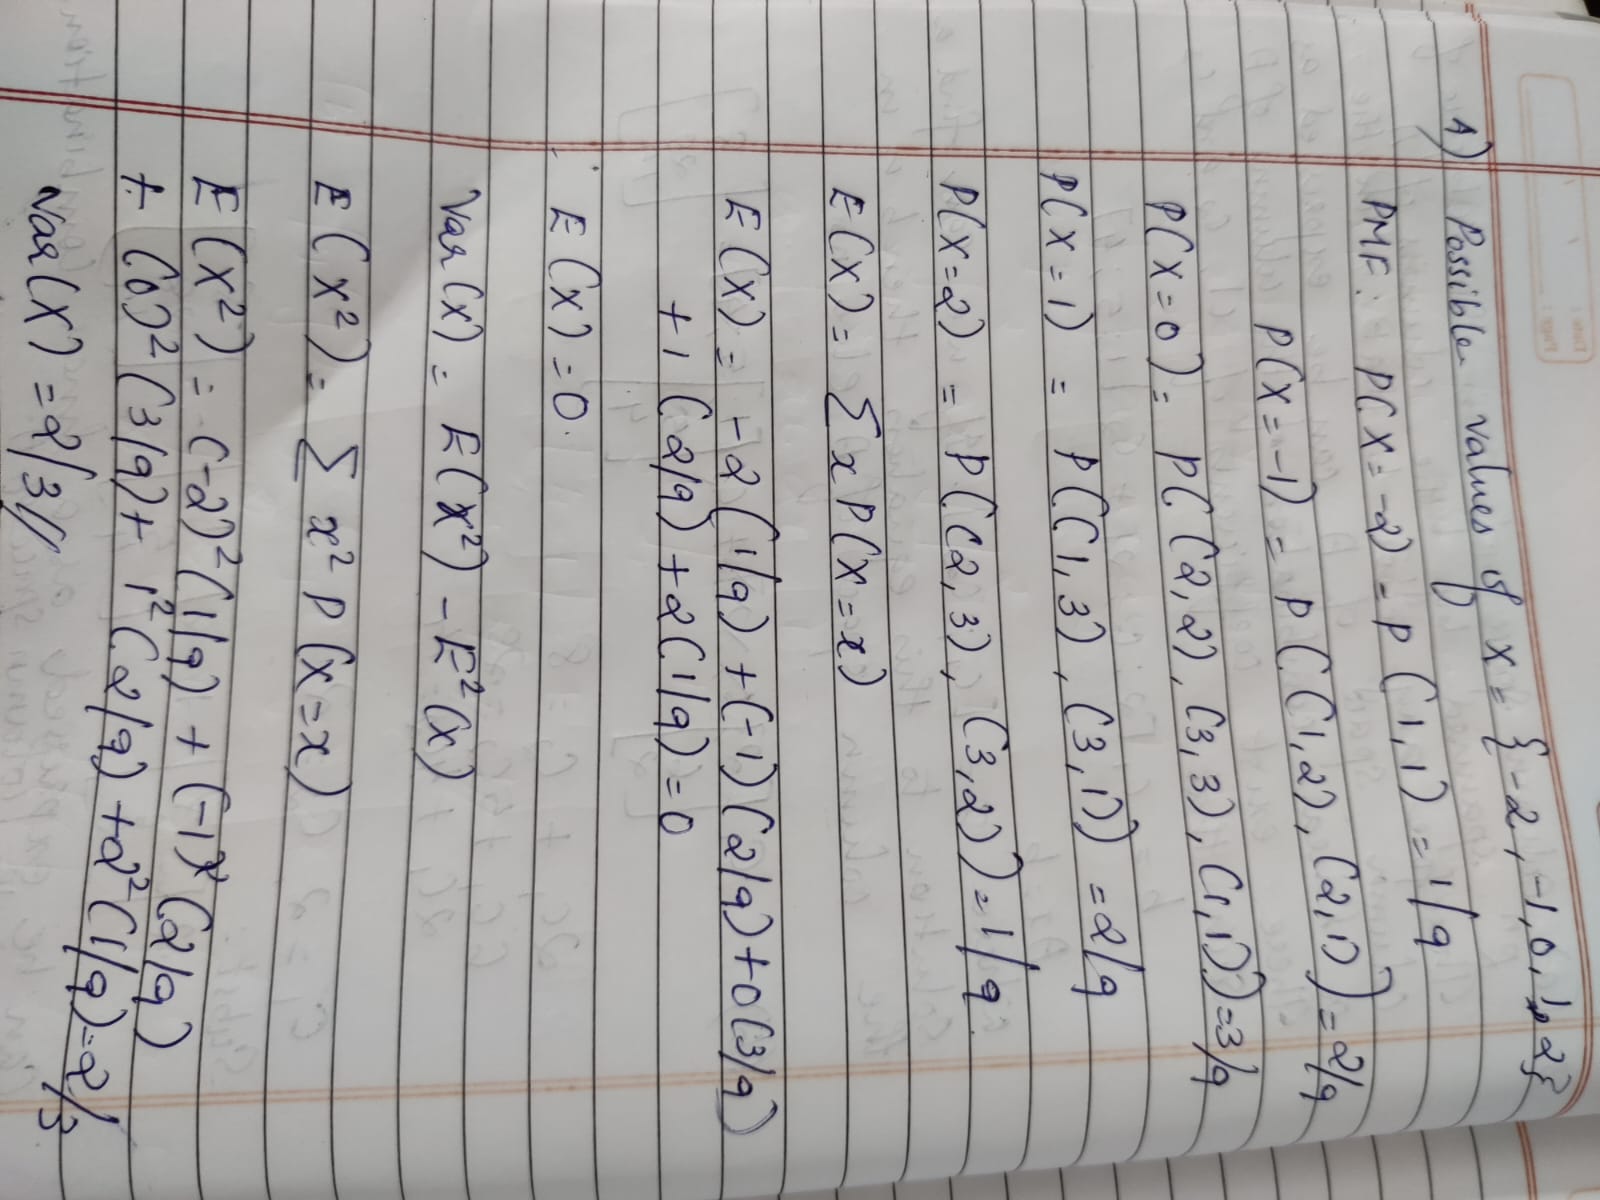 A) Possible values of x = {-2, -1, 0, 1, 2}
PMF: P(X=-2) = P(1,1) = 1/9
P(X=-1) = P((1,2), (2,1)) = 2/9
P(X=0) = P((2,2), (3,3), (1,1)) = 3/9
P(X=1) = P((1,3), (3,1)) = 2/9
P(X=2) = P((2,3), (3,2)) = 1/9
E(X) = Σ x P(X=x)
E(X) = -2(1/9) + (-1)(2/9) + 0(3/9)
+ 1(2/9) + 2(1/9) = 0
E(X) = 0.
Var(X) = E(X²) - E²(X)
E(X²) = Σ x² P(X=x)
E(X²) = (-2)²(1/9) + (-1)²(2/9)
+ (0)²(3/9) + 1²(2/9) + 2²(1/9) = 2/3
Var(X) = 2/3//